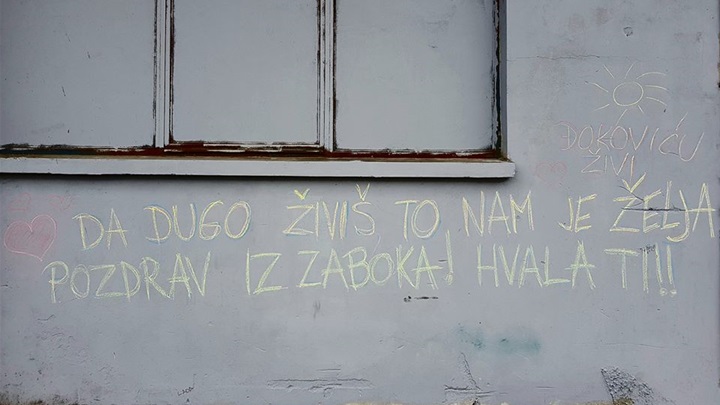 ĐOKOVIĆU
ŽIVI
DA DUGO ŽIVIŠ TO NAM JE ŽELJA
POZDRAV IZ ZABOKA! HVALA TI!!